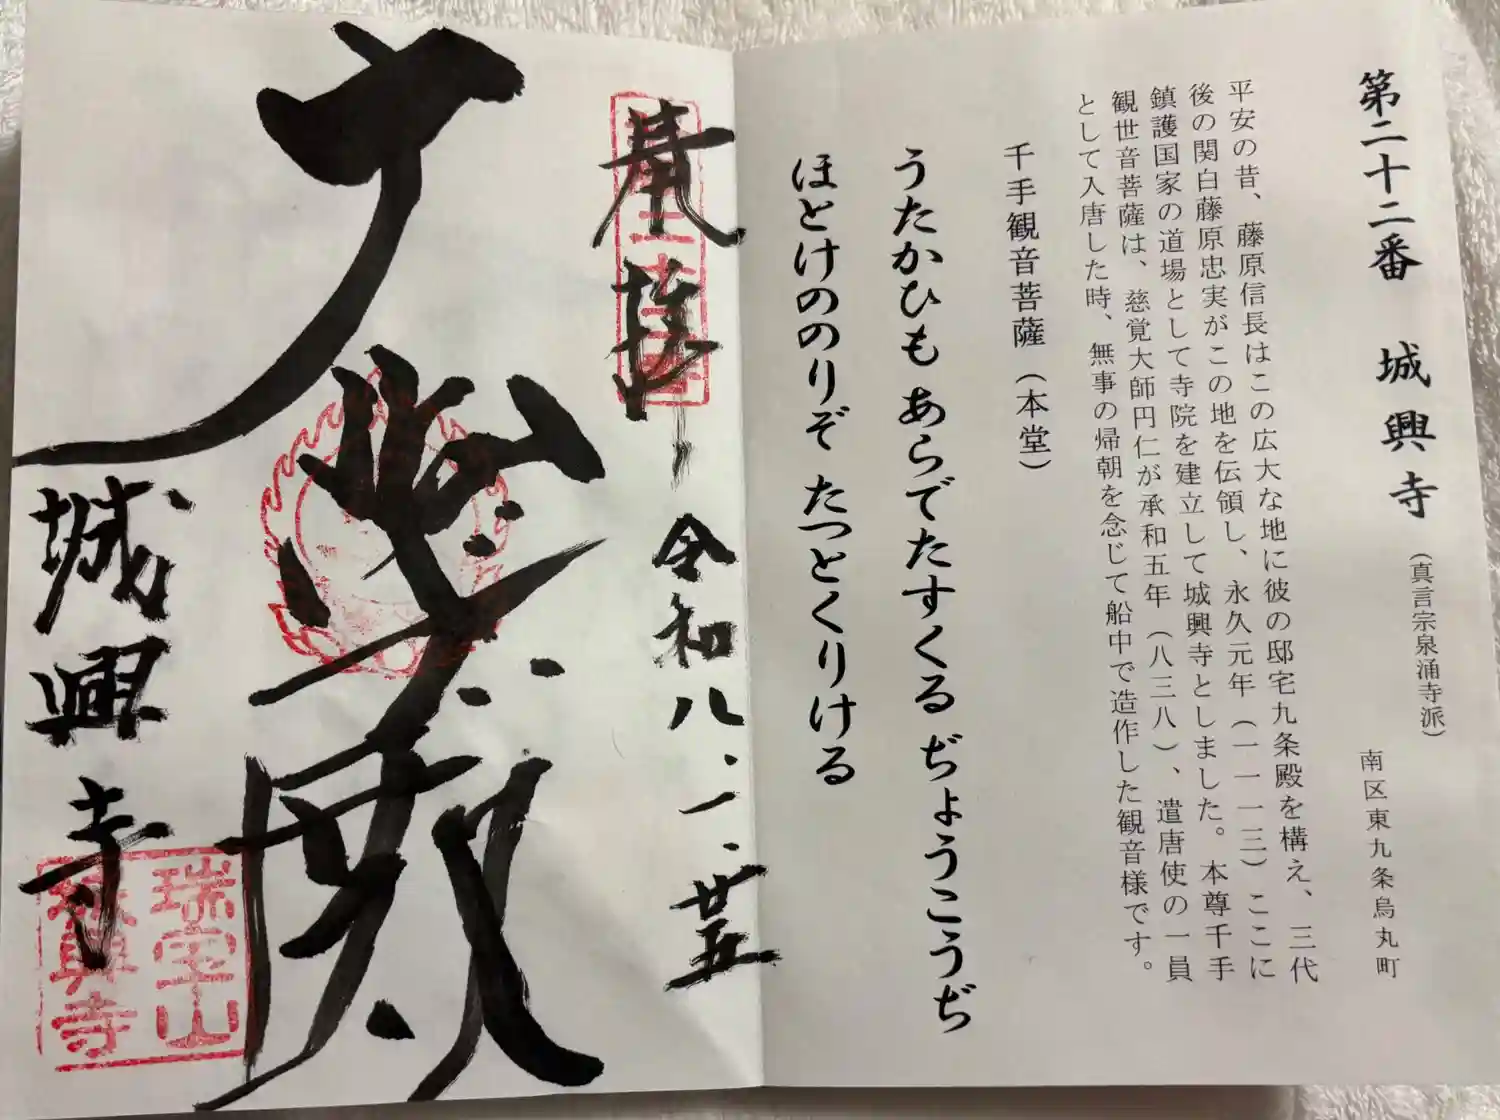 第二十二番 城興寺（真言宗泉涌寺派）
南区東九条烏丸町
平安の昔、藤原信長はこの広大な地に彼の邸宅九条殿を構え、三代
後の関白藤原忠実がこの地を伝領し、永久元年（一一一三）ここに
鎮護国家の道場として寺院を建立して城興寺としました。本尊千手
観世音菩薩は、慈覚大師円仁が承和五年（八三八）、遣唐使の一員
として入唐した時、無事の帰朝を念じて船中で造作した観音様です。
千手観音菩薩（本堂）
うたかひも あらでたすくる ぢょうこうぢ
ほとけののりぞ たつとくりける
奉拝
令和八.一.廿五
大悲殿
城興寺
瑞宝山
城興寺